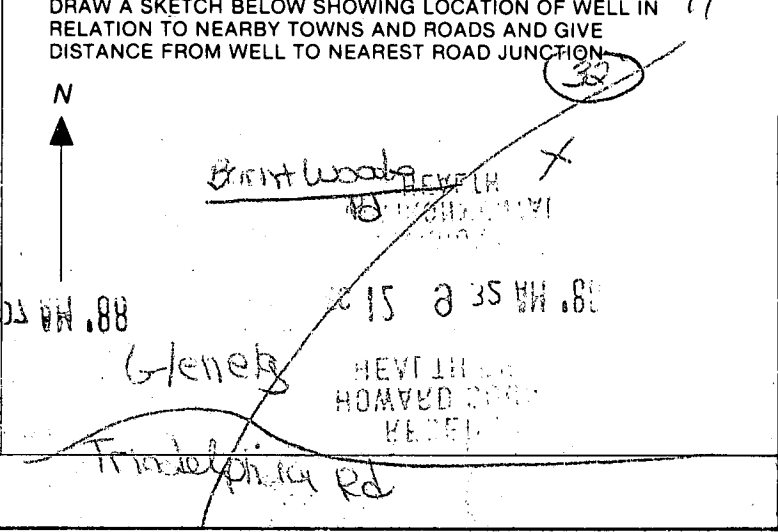 DRAW A SKETCH BELOW SHOWING LOCATION OF WELL IN
RELATION TO NEARBY TOWNS AND ROADS AND GIVE
DISTANCE FROM WELL TO NEAREST ROAD JUNCTION
32
N
Burnt Woods
Rd
X
HEALTH
9 35 AM '8
AM '88
Glenelg
HEALTH
HOWARD
Triadelphia Rd